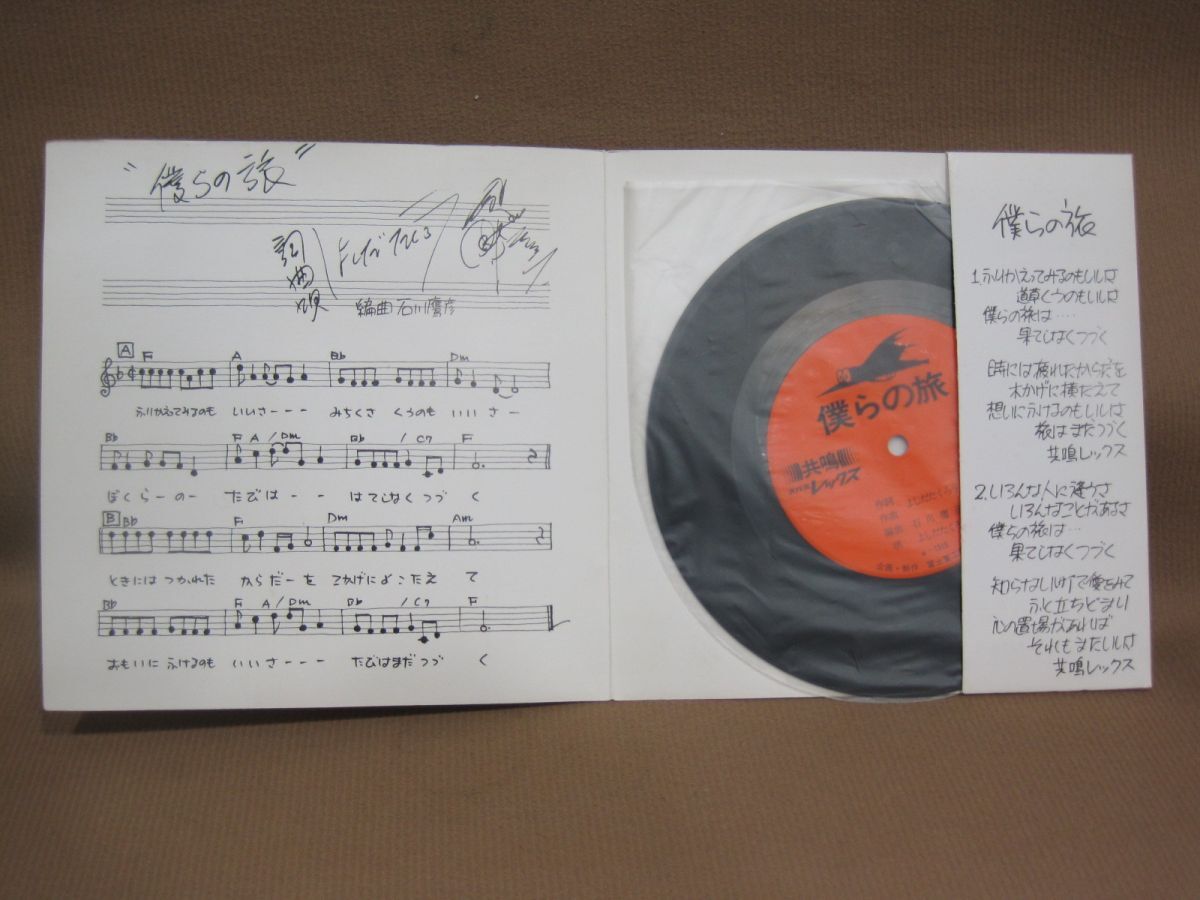 "僕らの旅"
詞 曲 唄
よしだたくろう
編曲 石川鷹彦
A
F A Bb Dm
ふりかえってみるのも いいさーーー みちくさ くうのも いいさー
Bb F A/Dm Bb /C7 F
ぼくらーのー たびはーー はてしなくつづ く
B
Bb F Dm Am
ときには つかれた からだーを こかげによこたえ て
Bb F A/Dm Bb /C7 F
おもいに ふけるのも いいさーーー たびはまだつづ く
僕らの旅
共鳴
レックス
作詞 よしだたくろ
作曲
編曲 石川鷹
唄 よしだたく
企画・制作
僕らの旅
1.ふりかえってみるのもいいさ
道草くうのもいいさ
僕らの旅は‥‥
果てしなくつづく
時には疲れたからだを
木かげに横たえて
想いにふけるのもいいさ
旅はまだつづく
共鳴レックス
2.いろんな人に逢うさ
いろんなことがあるさ
僕らの旅は…
果てしなくつづく
知らない町で愛をみて
ふと立ちどまり
心の置場があれば
それもまたいいさ
共鳴レックス